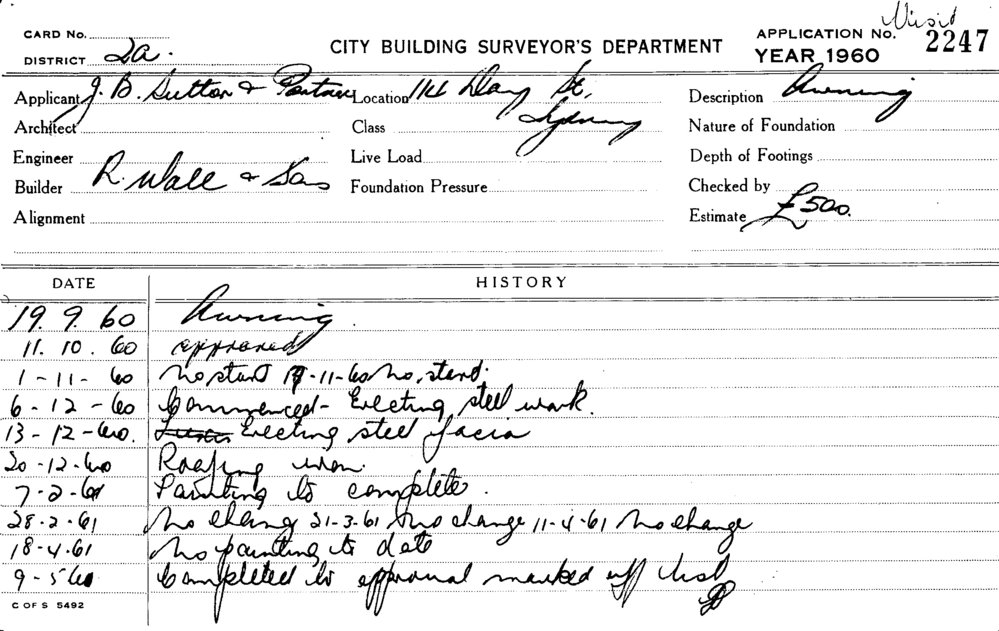 Visit
CARD No.
DISTRICT 2a.
CITY BUILDING SURVEYOR'S DEPARTMENT
APPLICATION No. 2247
YEAR 1960
Applicant J. B. Sutton & Partners Location 114 St, Sydney Description Awning
Architect Class Nature of Foundation
Engineer Live Load Depth of Footings
Builder R. Wall & Sons Foundation Pressure Checked by
Alignment Estimate £500.
DATE HISTORY
19. 9. 60 Awning.
11. 10. 60 approved
1-11-60 No start 17-11-60 No start.
6-12-60 Commenced - Erecting steel work.
13-12-60. Erecting steel facia
20-12-60 Roofing
7-2-61 Painting to complete.
28-2-61 No change 21-3-61 No change 11-4-61 No change
18-4-61 No painting to date
9-5-60 Completed to approval marked off list
C OF S 5492